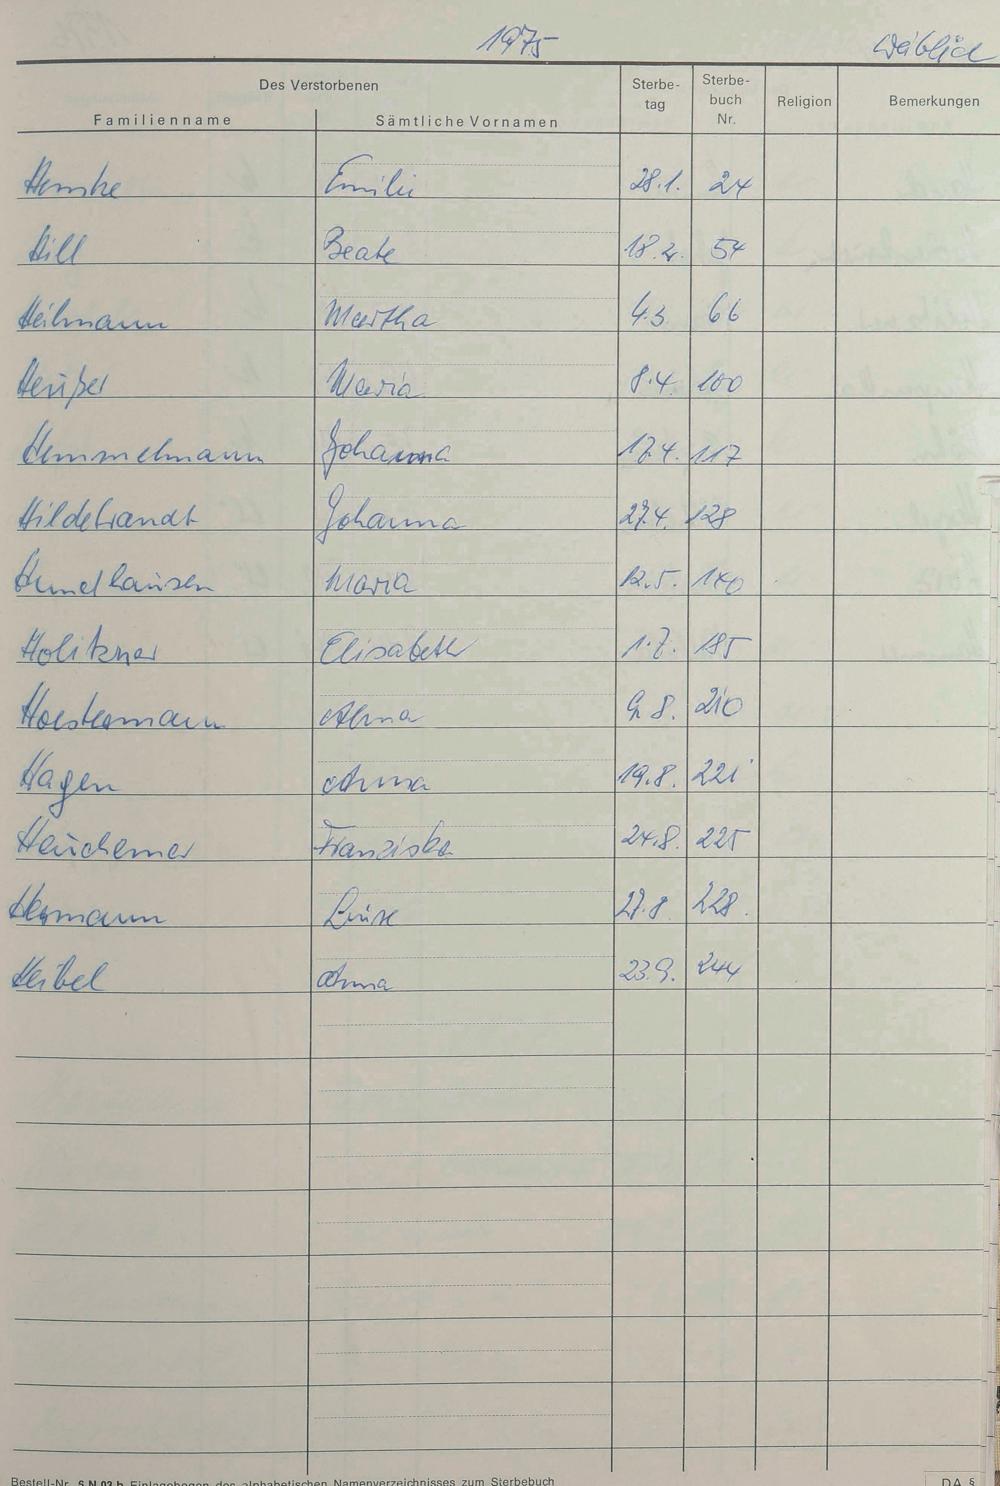 1975 Weiblich
Des Verstorbenen Sterbe-tag Sterbe-buch Nr. Religion Bemerkungen
Familienname Sämtliche Vornamen
Hemke Emilie 28.1. 24
Hill Beate 18.2. 54
Heilmann Martha 4.3. 66
Heußer Maria 8.4. 100
Hemmelmann Johanna 17.4. 117
Hildebrandt Johanna 27.4. 128
Hundhausen Maria 12.5. 140
Holitzner Elisabeth 1.7. 185
Horstermann Alma 9.8. 210
Hagen Anna 19.8. 221
Heuchemer Franziska 24.8. 225
Hermann Luise 27.8. 228
Heibel Anna 23.9. 244
Bestell-Nr. Einlagebogen des alphabetischen Namenverzeichnisses zum Sterbebuch DA §